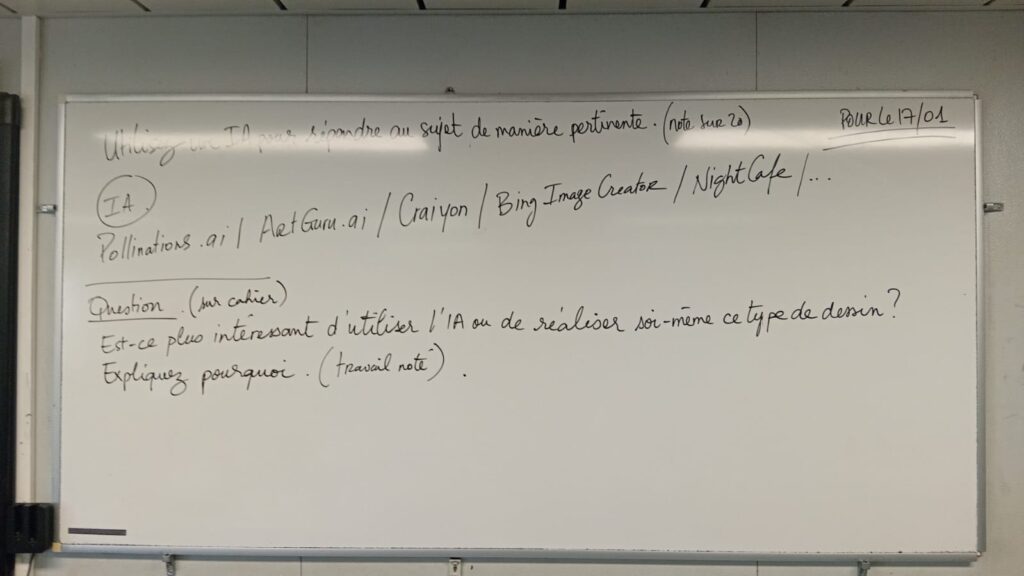 Utilisez une IA pour répondre au sujet de manière pertinente. (note sur 20)
POUR le 17/01
IA.
Pollinations.ai / ArtGuru.ai / Craiyon / Bing Image Creator / NightCafe /...
Question. (sur cahier)
Est-ce plus intéressant d'utiliser l'IA ou de réaliser soi-même ce type de dessin?
Expliquez pourquoi. (travail noté).